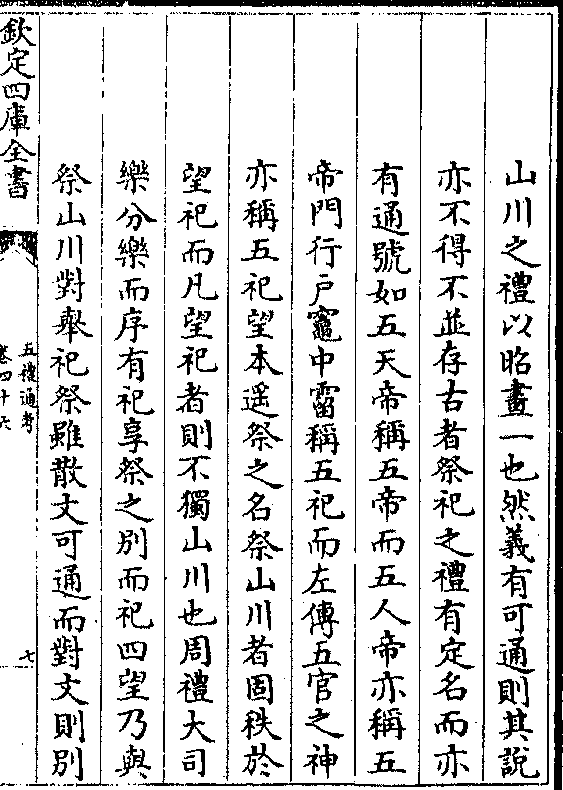 山川之禮以昭畫一也然義有可通則其說
亦不得不並存古者祭祀之禮有定名而亦
有通號如五天帝稱五帝而五人帝亦稱五
帝門行户竈中霤稱五祀而左傳五官之神
亦稱五祀望本遥祭之名祭山川者固秩於
望祀而凡望祀者則不獨山川也周禮大司
樂分樂而序有祀享祭之别而祀四望乃與
祭山川對舉祀祭雖散文可通而對文則别
欽定四庫全書
五禮通考
卷四十六
七